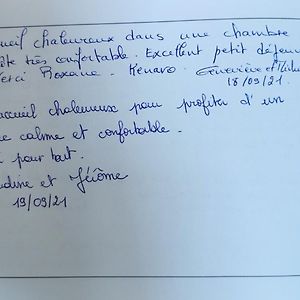 ueil chaleureux dans une chambre
ôte très confortable. Excellent petit déjeu
erci Roxane. Kenavo. Geneviève et
18/09/21.
accueil chaleureux pour profiter d'un
e calme et confortable.
i pour tout.
dine et Jérôme
19/09/21